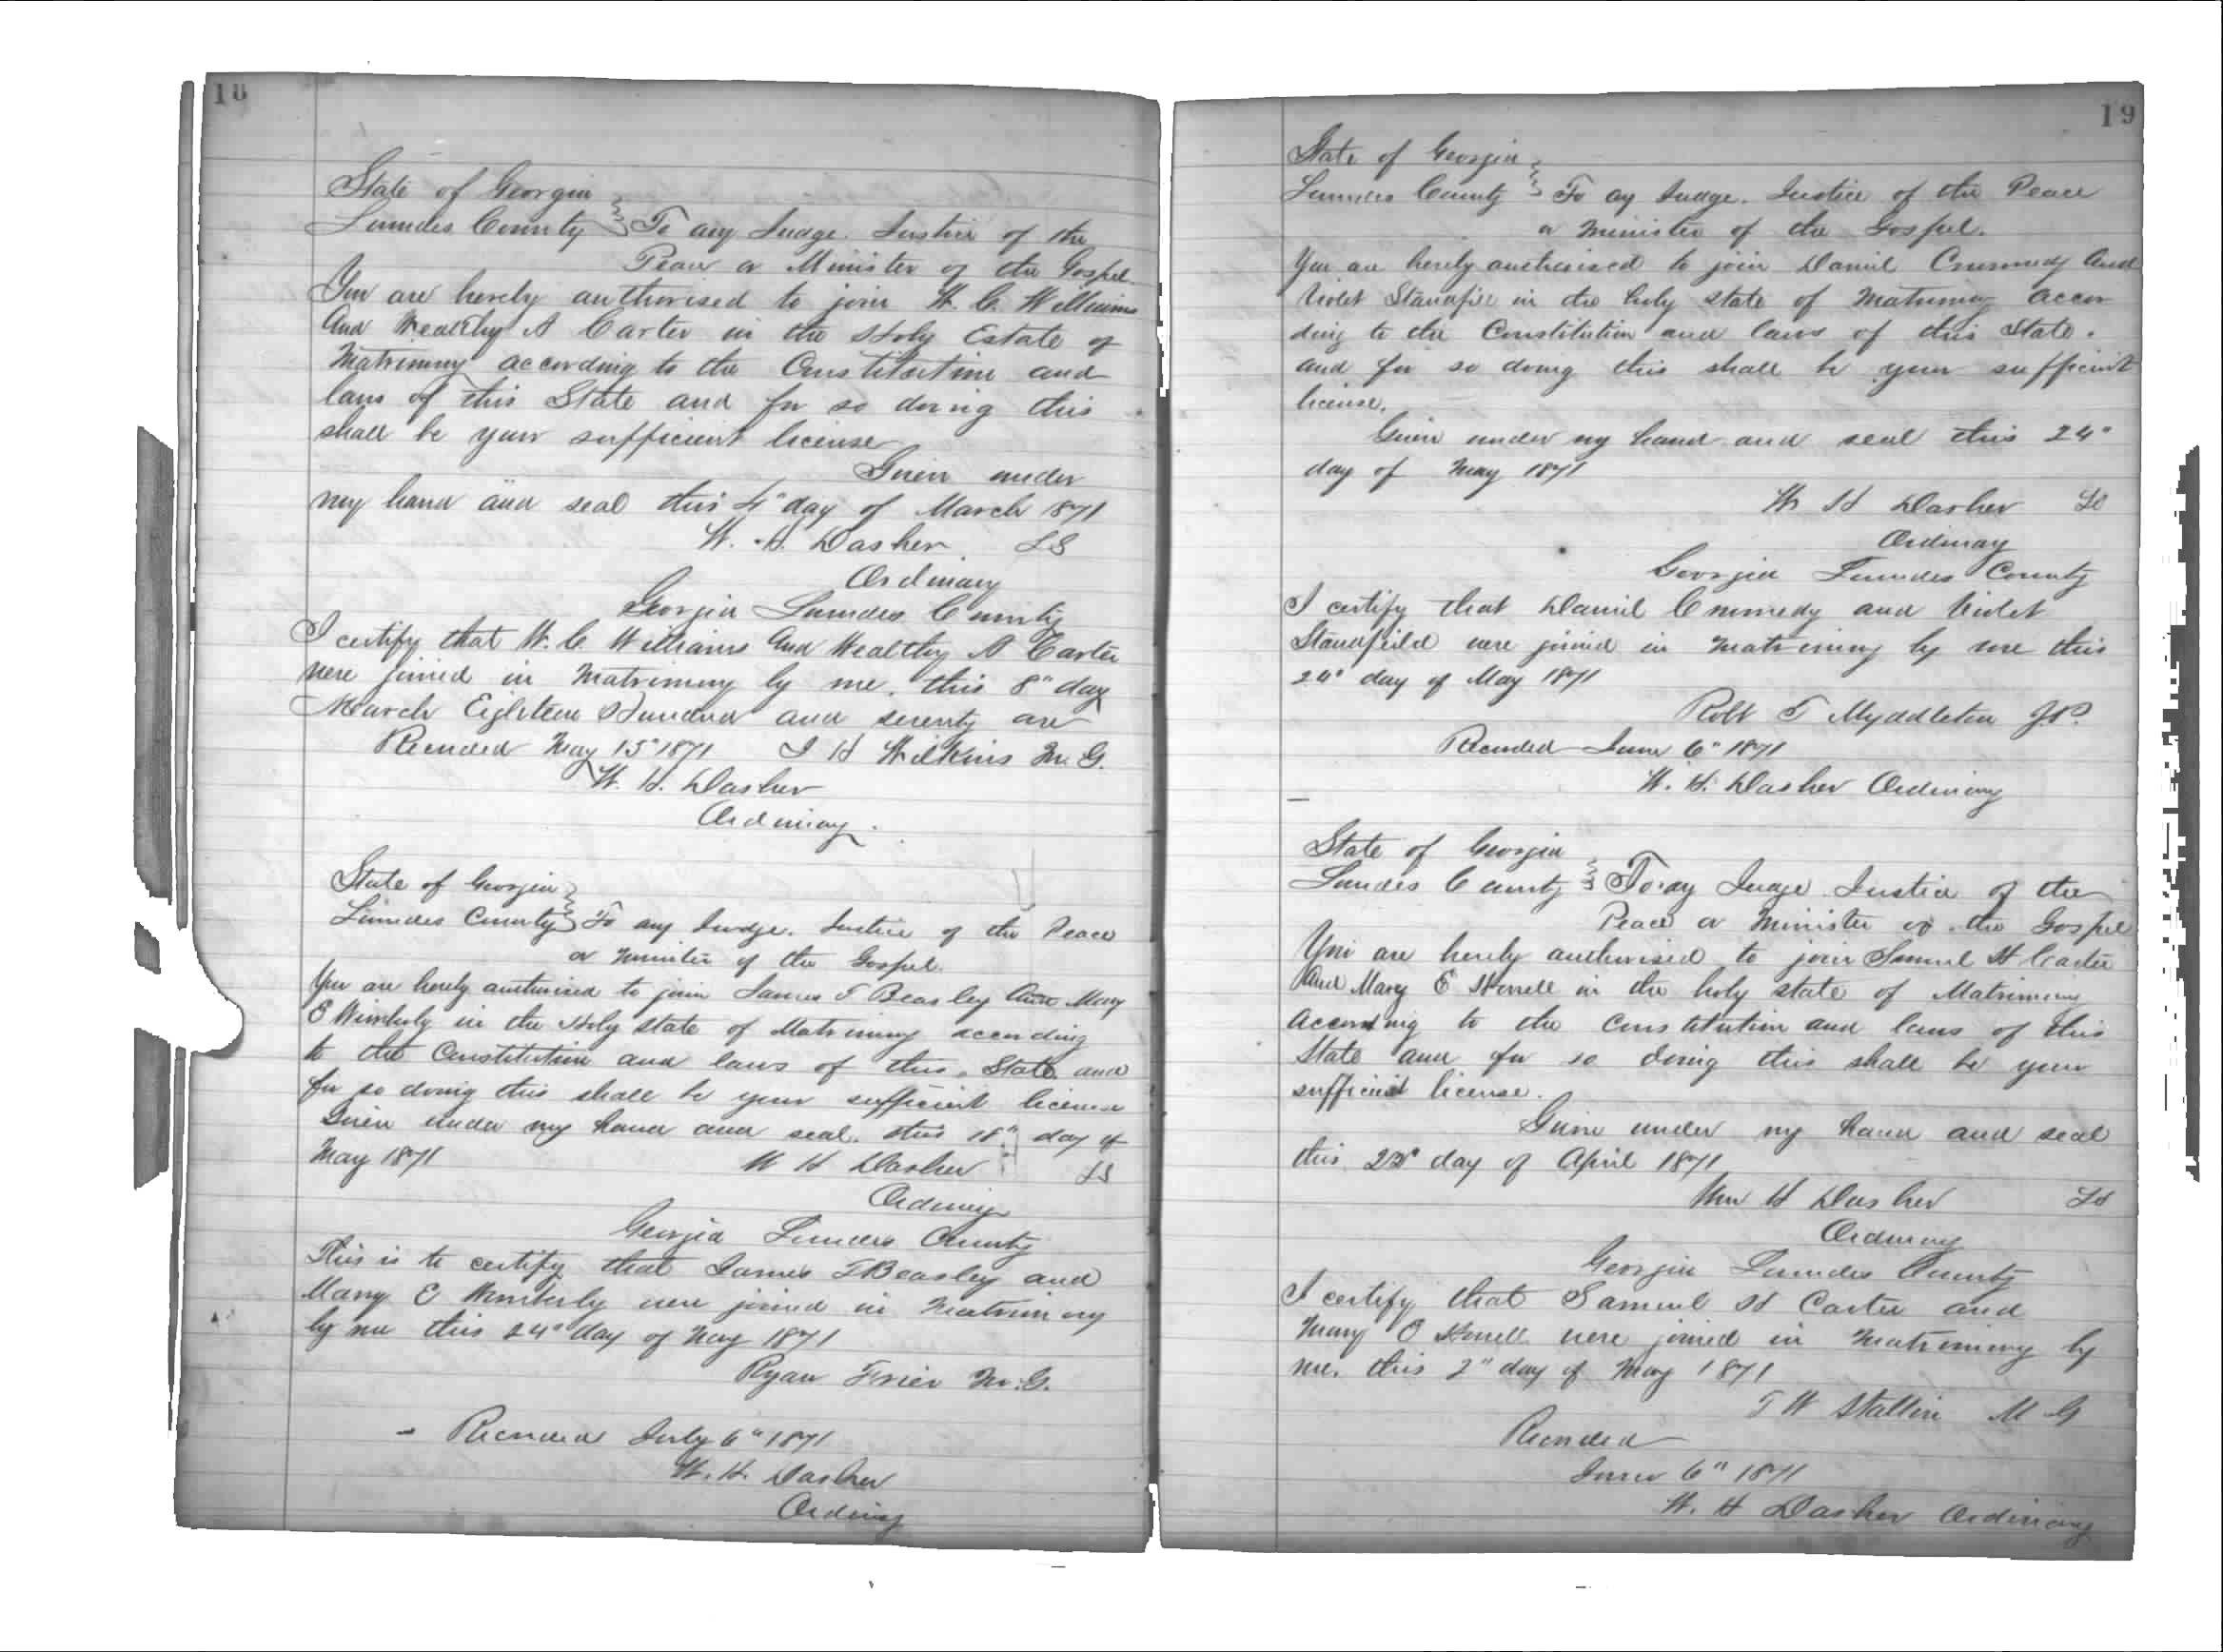 18
State of Georgia
Lowndes County } To any Judge. Justice of the
Peace or Minister of the Gospel
You are hereby authorised to join W. C. Williams
And Wealthy A Carter in the Holy Estate of
Matrimony according to the Constitution and
laws of this State and for so doing this
shall be your sufficient license
Given under
my hand and seal this 4" day of March 1871
W. H. Dasher LS
Ordinary
Georgia Lowndes County
I certify that W. C. Williams And Wealthy A Carter
were joined in Matrimony by me. this 8" day
March Eighteen Hundred and seventy one
Recorded May 15" 1871 J H Wilkins M. G.
W. H. Dasher
Ordinary.
State of Georgia
Lowndes County } To any Judge. Justice of the Peace
or minister of the Gospel.
You are hereby authorised to join James T Beasley And Mary
E Wimberly in the Holy state of Matrimony according
to the Constitution and laws of this State and
for so doing this shall be your sufficient license
Given under my hand and seal. this 18" day of
May 1871 W H Dasher LS
Ordinary
Georgia Lowndes County
This is to certify that James T Beasley and
Mary E Wimberly were joined in Matrimony
by me this 24" day of May 1871
Ryan Frier M. G.
Recorded July 6" 1871
W. H. Dasher
Ordinary
19
State of Georgia
Lowndes County } To any Judge. Justice of the Peace
or Minister of the Gospel.
You are hereby authorised to join Daniel and
Violet in the holy state of Matrimony accor
ding to the Constitution and laws of this State.
and for so doing this shall be your sufficient
license.
Given under my hand and seal this 24"
day of May 1871
W H Dasher LS
Ordinary
Georgia Lowndes County
I certify that Daniel and Violet
Standfeild were joined in matrimony by me this
24" day of May 1871
Robt T Myddleton J.P.
Recorded June 6" 1871
W. H. Dasher Ordinary
State of Georgia
Lowndes County } To any Judge Justice of the
Peace or Minister of the Gospel
You are hereby authorised to join Samuel H Carter
And Mary E in the holy state of Matrimony
According to the Constitution and laws of this
State and for so doing this shall be your
sufficient license.
Given under my hand and seal
this day of April 1871
Wm H Dasher LS
Ordinary
Georgia Lowndes County
I certify that Samuel H Carter and
Mary were joined in Matrimony by
me. this 2" day of May 1871
T W Stallin M G
Recorded
June 6" 1871
W. H Dasher Ordinary